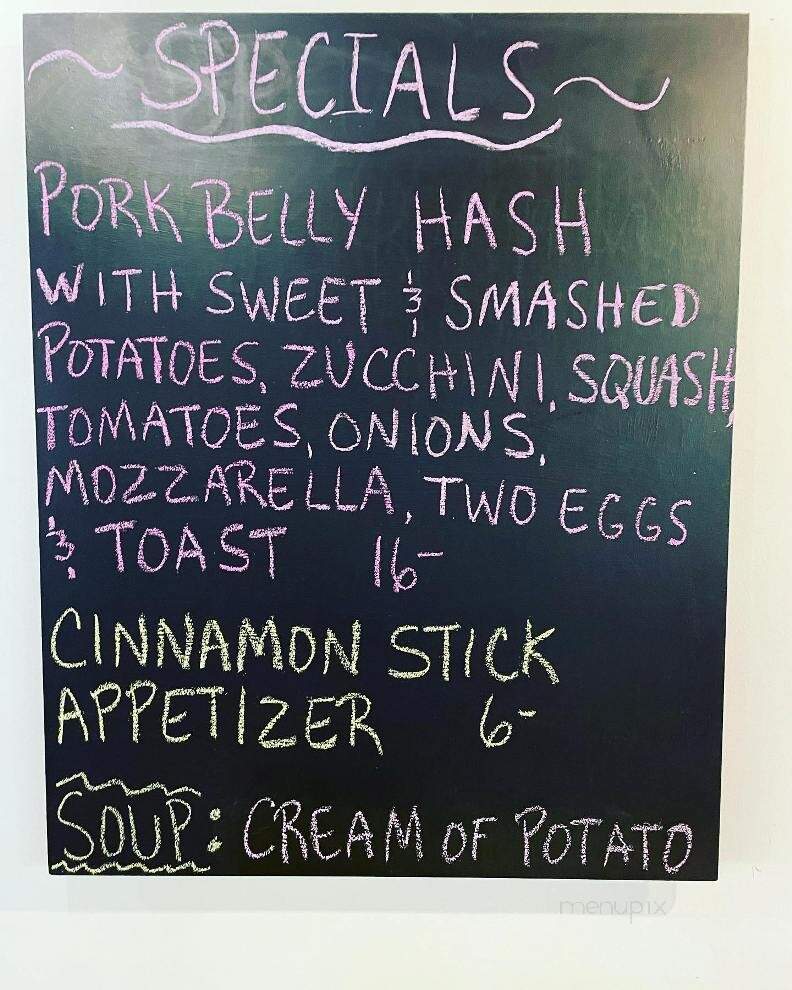 ~ SPECIALS ~
PORK BELLY HASH
WITH SWEET & SMASHED
POTATOES, ZUCCHINI, SQUASH,
TOMATOES, ONIONS,
MOZZARELLA, TWO EGGS
& TOAST 16-
CINNAMON STICK
APPETIZER 6-
SOUP: CREAM OF POTATO
menupix